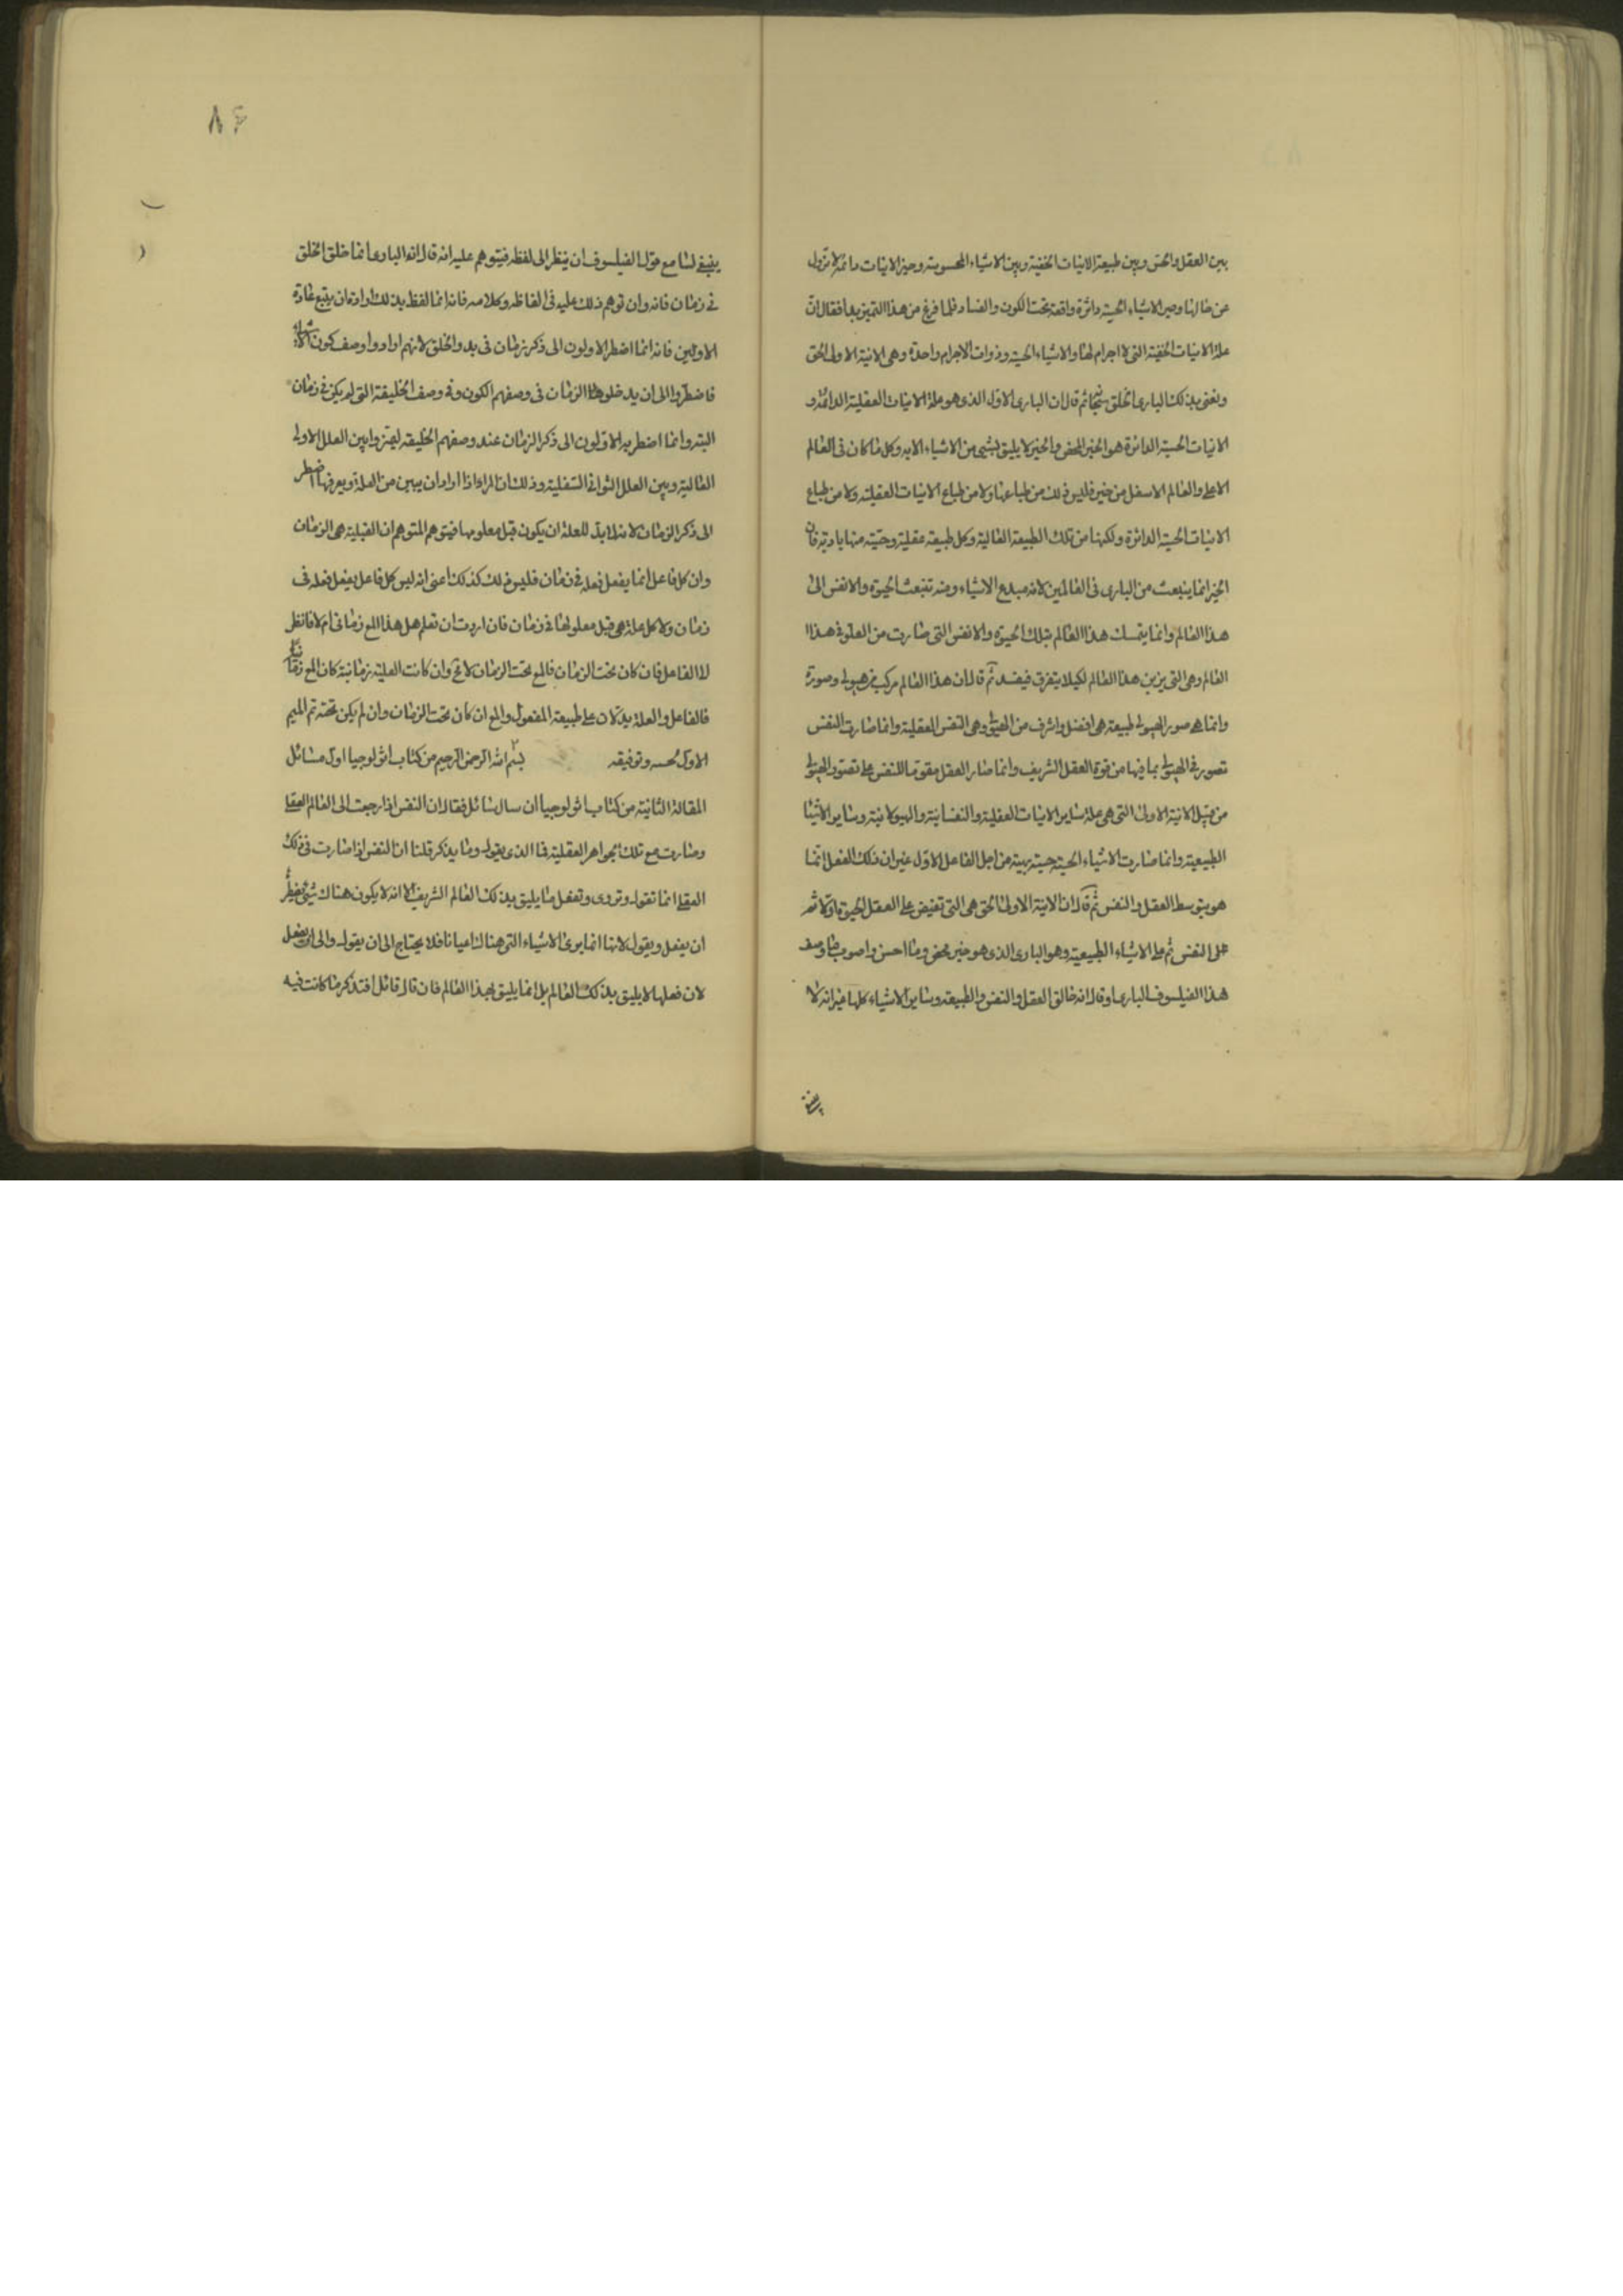 بين العقل والحس وبين طبيعة الانيات الخفية وبين الاشياء المحسوسة وصير الانيات دائمة لا تزول
عن حالها وصير الاشياء الحسية داثرة واقعة تحت الكون والفساد فلما فرغ من هذا التميز بدا فقال ان
علة الانيات الخفية التي لا اجرام لها والاشياء الحسية وذوات الاجرام واحدة وهي الانية الاولى الحق
ونعني بذلك الباري الخلق ثم قال ان الباري الاول الذي هو علة الانيات العقلية الدائمة و
الانيات الحسية الداثرة هو الخير المحض والخير لا يليق بشيء من الاشياء الا به وكل ما كان في العالم
الاعلى والعالم الاسفل من خير فليس ذلك من طباعها ولا من طباع الانيات العقلية ولا من طباع
الانيات الحسية الداثرة ولكنها من تلك الطبيعة العالية وكل طبيعة عقلية وحسية منها بادية فان
الخير انما ينبعث من الباري في العالمين لانه مبدع الاشياء ومنه تنبعث الحيوة والانفس الى
هذا العالم وانما يتمسك هذا العالم بتلك الحيوة والانفس التي صارت من العلو في هذا
العالم وهي التي يزين هذا العالم لكيلا يتفرق فيفسد ثم قال ان هذا العالم مركب من هيولى وصورة
وانما صور الهيولى طبيعة هي افضل واشرف من الهيولى وهي النفس العقلية وانما صارت النفس
تصور في الهيولى بما فيها من قوة العقل الشريف وانما صار العقل مقويا للنفس على تصور الهيولى
من قبل الانية الاولى التي هي علة ساير الانيات العقلية والنفسانية والهيولانية وساير الاشيا
الطبيعية وانما صارت الاشياء الحسية حسنة بهية من اجل الفاعل الاول غير ان ذلك الفعل انما
هو بتوسط العقل والنفس ثم قال ان الانية الاولى الحق هي التي تفيض على العقل الحيوة اولا ثم
على النفس ثم على الاشياء الطبيعية وهو الباري الذي هو خير محض وما احسن واصوب ما وصف
هذا الفيلسوف الباري اذ قال انه خالق العقل والنفس والطبيعة وساير الاشياء كلها غير انه لا
ينبغي
٨٤
ينبغي لسامع قول الفيلسوف ان ينظر الى لفظه فيتوهم عليه انه قال ان الباري انما خلق الخلق
في زمان فانه وان توهم ذلك عليه في الفاظه وكلامه فانه انما لفظ بذلك ارادة ان يتبع عادة
الاولين فانه انما اضطر الاولون الى ذكر زمان في بدو الخلق لانهم ارادوا وصف كون الاشياء
فاضطروا الى ان يدخلوا الزمان في وصفهم الكون وفي وصف الخليقة التي لم يكن في زمان
البتة وانما اضطر به الاولون الى ذكر الزمان عند وصفهم الخليقة ليميزوا بين العلل الاولى
العالية وبين العلل الثواني السفلية وذلك ان المرا اذا اراد ان يبين عن العلة ويعرفها اضطر
الى ذكر الزمان لانه لا بد للعلة ان يكون قبل معلولها فيتوهم المتوهم ان القبلية هي الزمان
وان كل فاعل انما يفعل فعله في زمان فليس ذلك كذلك اعني انه ليس كل فاعل يفعل فعله في
زمان ولا كل علة هي قبل معلولها في زمان فان اردت ان تعلم هل هذا المع زماني ام لا فانظر
لا الفاعل فان كان تحت الزمان فالمع تحت الزمان لا مح وان كانت العلية زمانية كان المع زمانيا
فالفاعل والعلة يدلان على طبيعة المفعول والمع ان كان تحت الزمان وان لم يكن تحته تم الميم
الاول بحسه وتوفيقه بسم الله الرحمن الرحيم من كتاب اثولوجيا اول مسائل
المقالة الثانية من كتاب اثولوجيا ان سال سائل فقال ان النفس اذا رجعت الى العالم العقلي
وصارت مع تلك الجواهر العقلية فما الذي يقول وما يذكر قلنا ان النفس اذا صارت في ذلك
العقلي انما تقول وتروى وتفعل ما يليق بذلك العالم الشريف الا انه لا يكون هناك شيء يضطر
ان يفعل ويقول لانها انما يرى الاشياء التي هناك عيانا فلا يحتاج الى ان يقول والى ان يفعل
لان فعلها لا يليق بذلك العالم بل انما يليق بهذا العالم فان قال قائل افتذكر ما كانت فيه